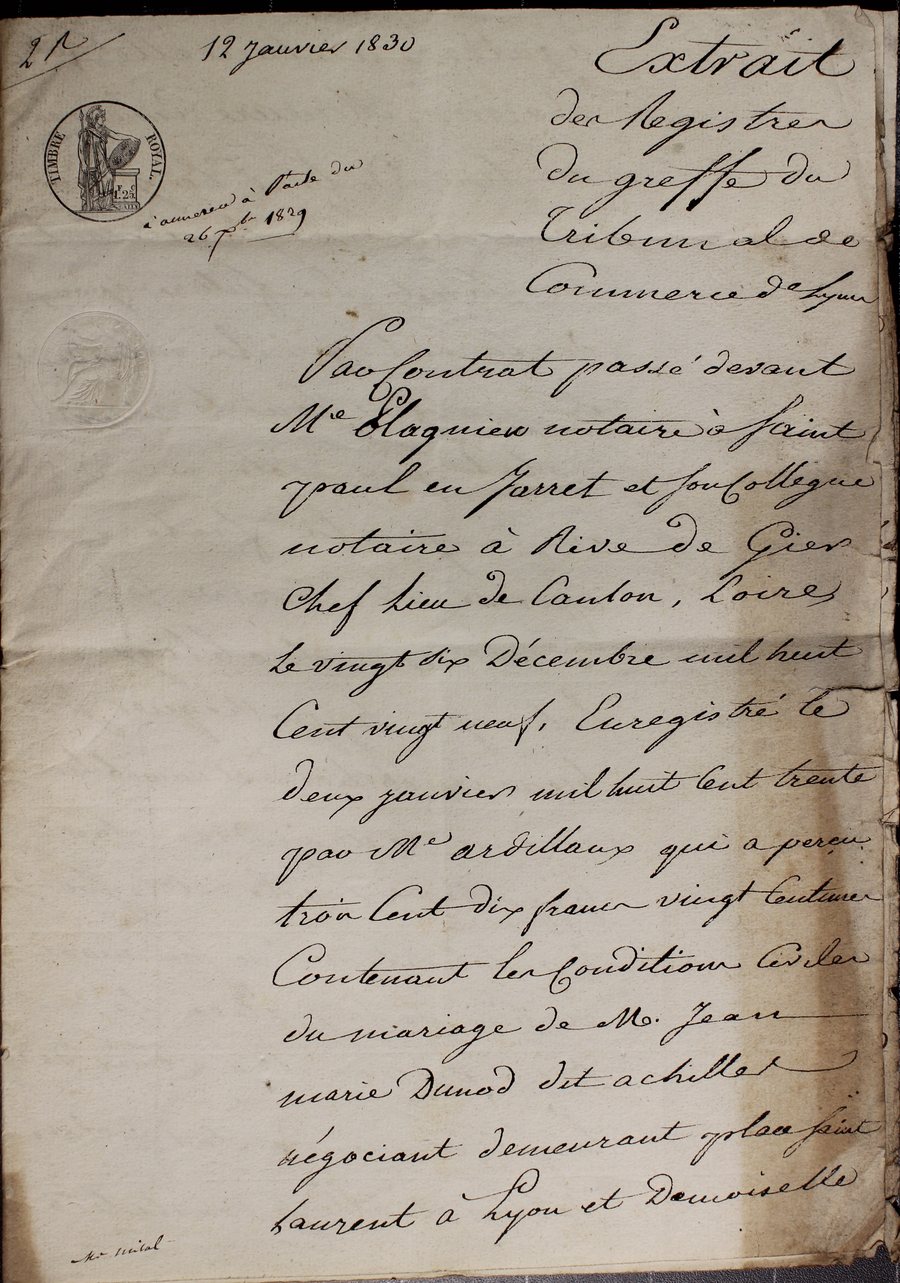 12 Janvier 1830
TIMBRE ROYAL.
à annexer à l'acte du
26 Xbre 1829
Extrait
des Registres
du greffe du
Tribunal de
Commerce de Lyon
Par Contrat passé devant
Me Plagnieu notaire à Saint
paul en Jarret et son Collègue
notaire à Rive de Gier
Chef lieu de Canton, Loire,
le vingt six Décembre mil huit
Cent vingt neuf, Enregistré le
deux janvier mil huit Cent trente
par Me ardillaux qui a perçu
trois Cent dix francs vingt Centimes
Contenant les Conditions Civiles
du mariage de M. Jean
marie Dunod dit achilles
négociant demeurant place Saint
Laurent à Lyon et Demoiselle